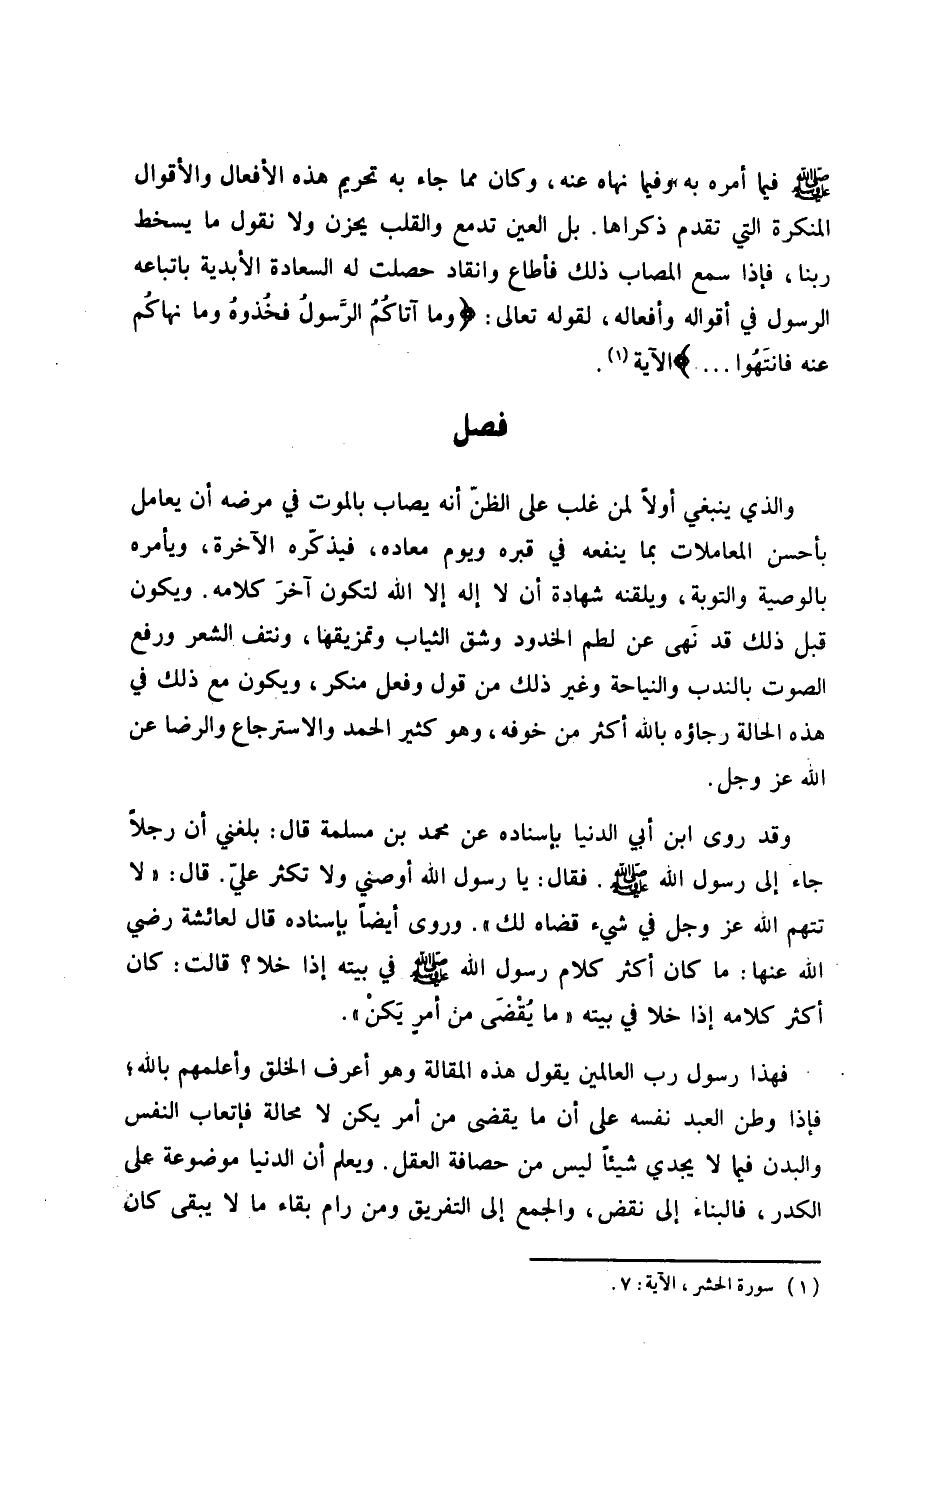 ﷺ فيما أمره به وفيما نهاه عنه، وكان مما جاء به تحريم هذه الأفعال والأقوال
المنكرة التي تقدم ذكراها. بل العين تدمع والقلب يحزن ولا نقول ما يسخط
ربنا، فإذا سمع المصاب ذلك فأطاع وانقاد حصلت له السعادة الأبدية باتباعه
الرسول في أقواله وأفعاله، لقوله تعالى: ﴿وما آتاكُمُ الرَّسولُ فخُذوهُ وما نهاكُم
عنه فانتَهُوا ... ﴾الآية (١).
فصل
والذي ينبغي أولاً لمن غلب على الظنّ أنه يصاب بالموت في مرضه أن يعامل
بأحسن المعاملات بما ينفعه في قبره ويوم معاده، فيذكّره الآخرة، ويأمره
بالوصية والتوبة، ويلقنه شهادة أن لا إله إلا الله لتكون آخرَ كلامه. ويكون
قبل ذلك قد نَهى عن لطم الخدود وشق الثياب وتمزيقها، ونتف الشعر ورفع
الصوت بالندب والنياحة وغير ذلك من قول وفعل منكر، ويكون مع ذلك في
هذه الحالة رجاؤه بالله أكثر من خوفه، وهو كثير الحمد والاسترجاع والرضا عن
الله عز وجل.
وقد روى ابن أبي الدنيا بإسناده عن محمد بن مسلمة قال: بلغني أن رجلاً
جاء إلى رسول الله ﷺ. فقال: يا رسول الله أوصني ولا تكثر عليّ. قال: «لا
تتهم الله عز وجل في شيء قضاه لك». وروى أيضاً بإسناده قال لعائشة رضي
الله عنها: ما كان أكثر كلام رسول الله ﷺ في بيته إذا خلا؟ قالت: كان
أكثر كلامه إذا خلا في بيته «ما يُقْضَى من أمرٍ يَكنْ».
فهذا رسول رب العالمين يقول هذه المقالة وهو أعرف الخلق وأعلمهم بالله؛
فإذا وطن العبد نفسه على أن ما يقضى من أمر يكن لا محالة فإتعاب النفس
والبدن فيما لا يجدي شيئاً ليس من حصافة العقل. ويعلم أن الدنيا موضوعة على
الكدر، فالبناء إلى نقض، والجمع إلى التفريق ومن رام بقاء ما لا يبقى كان
(١) سورة الحشر، الآية: ٧.